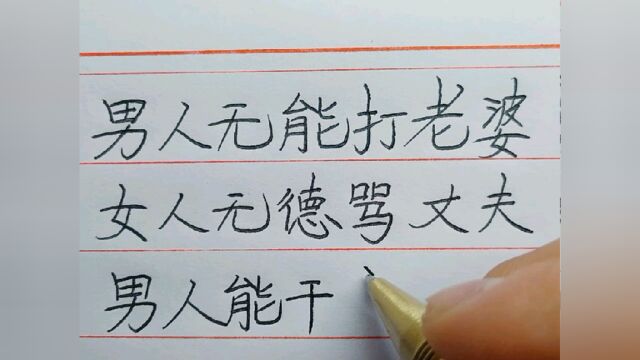 男人无能打老婆
女人无德骂丈夫
男人能干